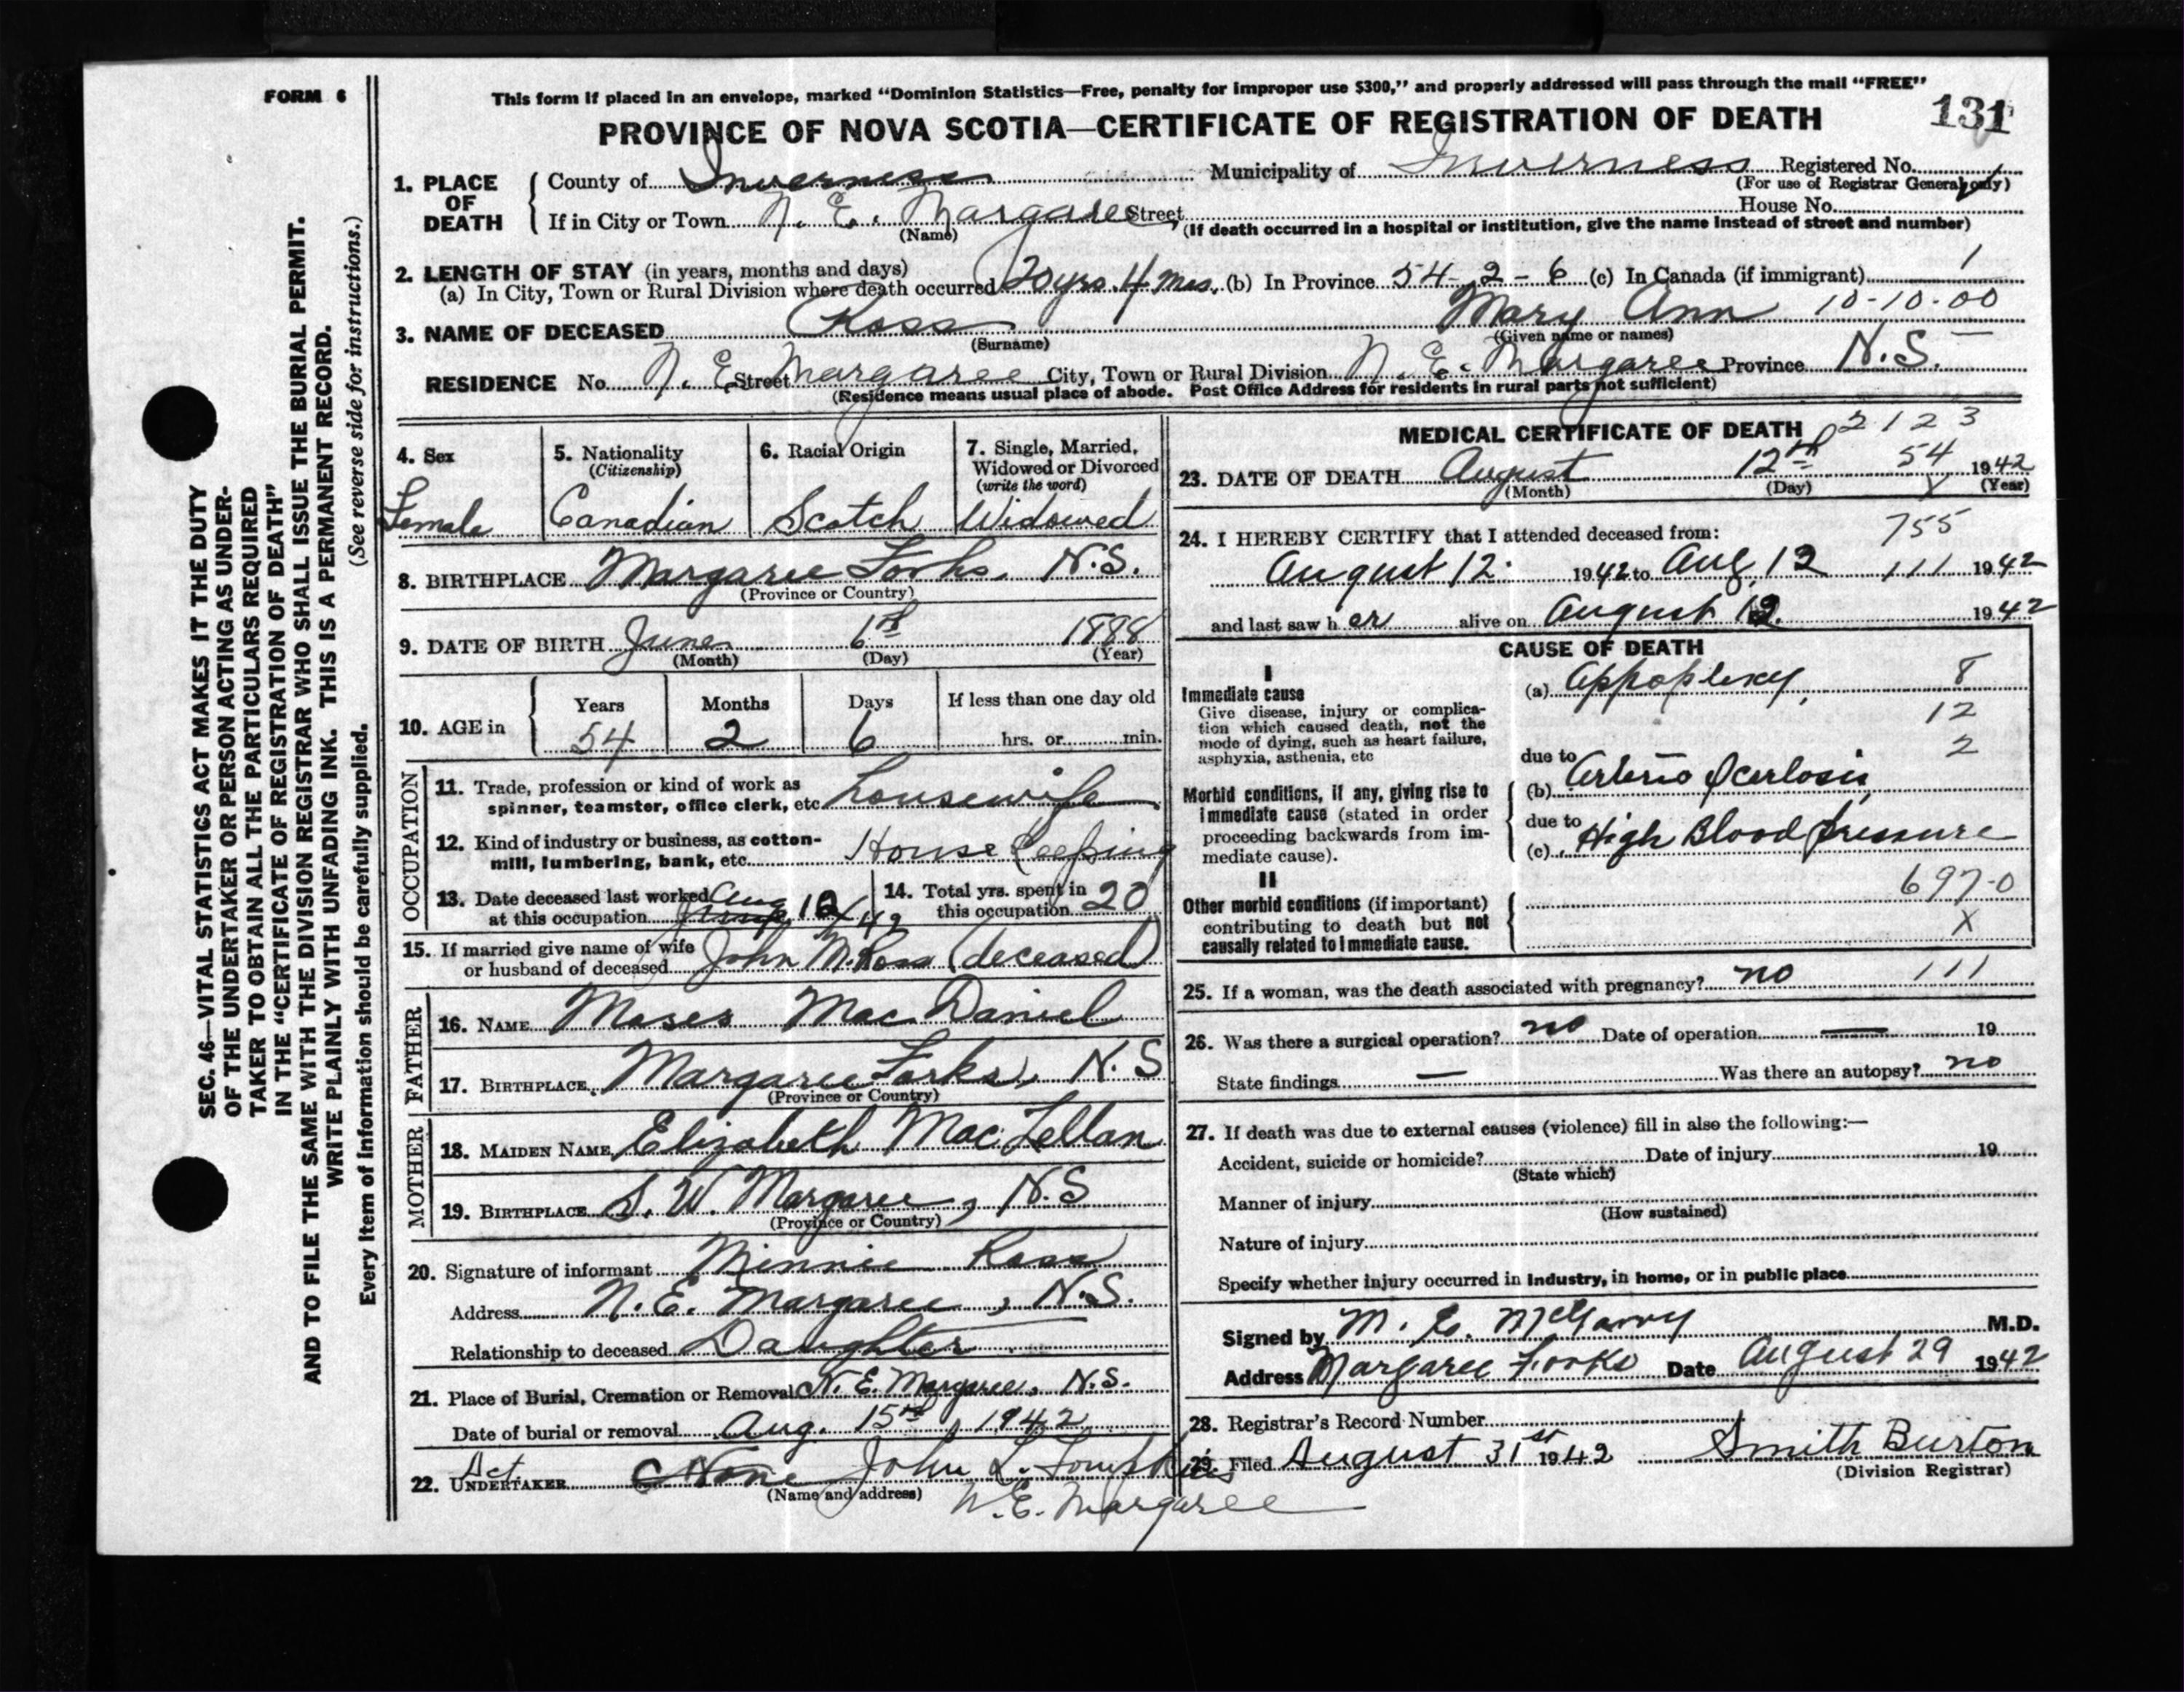 FORM 6
This form if placed in an envelope, marked "Dominion Statistics—Free, penalty for improper use $300," and properly addressed will pass through the mail "FREE"
131
PROVINCE OF NOVA SCOTIA—CERTIFICATE OF REGISTRATION OF DEATH
1. PLACE OF DEATH
County of Inverness Municipality of Inverness Registered No.
(For use of Registrar General only)
If in City or Town N. E. Margaree Street House No.
(Name) (If death occurred in a hospital or institution, give the name instead of street and number)
2. LENGTH OF STAY (in years, months and days)
(a) In City, Town or Rural Division where death occurred 20 yrs. 4 mos. (b) In Province 54-2-6 (c) In Canada (if immigrant) 1
3. NAME OF DECEASED Ross Mary Ann 10-10-00
(Surname) (Given name or names)
RESIDENCE No. N. E. Street Margaree City, Town or Rural Division N. E. Margaree Province N.S.
(Residence means usual place of abode. Post Office Address for residents in rural parts not sufficient)
4. Sex
Female
5. Nationality
(Citizenship)
Canadian
6. Racial Origin
Scotch
7. Single, Married,
Widowed or Divorced
(write the word)
Widowed
8. BIRTHPLACE Margaree Forks, N.S.
(Province or Country)
9. DATE OF BIRTH June 6th 1888
(Month) (Day) (Year)
10. AGE in
Years Months Days If less than one day old
54 2 6 hrs. or min.
OCCUPATION
11. Trade, profession or kind of work as
spinner, teamster, office clerk, etc. housewife
12. Kind of industry or business, as cotton-
mill, lumbering, bank, etc. House Keeping
13. Date deceased last worked
at this occupation Aug 12/42
14. Total yrs. spent in
this occupation 20
15. If married give name of wife
or husband of deceased John M. Ross (deceased)
FATHER
16. NAME Moses MacDaniel
17. BIRTHPLACE Margaree Forks, N.S
(Province or Country)
MOTHER
18. MAIDEN NAME Elizabeth MacLellan
19. BIRTHPLACE S. W. Margaree, N.S
(Province or Country)
20. Signature of informant Minnie Ross
Address N. E. Margaree, N.S.
Relationship to deceased Daughter
21. Place of Burial, Cremation or Removal N. E. Margaree, N.S.
Date of burial or removal Aug. 15th, 1942
22. Act UNDERTAKER None John L. Tompkins
(Name and address) N.E. Margaree
MEDICAL CERTIFICATE OF DEATH 2123
23. DATE OF DEATH August 12th 54 1942
(Month) (Day) (Year)
24. I HEREBY CERTIFY that I attended deceased from: 755
August 12. 1942 to Aug. 12 111 1942
and last saw her alive on August 12. 1942
CAUSE OF DEATH
I
Immediate cause
Give disease, injury or complica-
tion which caused death, not the
mode of dying, such as heart failure,
asphyxia, asthenia, etc
(a) Appoplexy, 8
12
2
due to
Morbid conditions, if any, giving rise to
immediate cause (stated in order
proceeding backwards from im-
mediate cause).
(b) Arterio Scerlosis,
due to
(c) High Blood Pressure
II
Other morbid conditions (if important)
contributing to death but not
causally related to immediate cause.
697-0
X
25. If a woman, was the death associated with pregnancy? no 111
26. Was there a surgical operation? no Date of operation — 19
State findings — Was there an autopsy? no
27. If death was due to external causes (violence) fill in also the following:—
Accident, suicide or homicide? Date of injury 19
(State which)
Manner of injury
(How sustained)
Nature of injury
Specify whether injury occurred in industry, in home, or in public place
Signed by M. M.D.
Address Margaree Forks Date August 29 1942
28. Registrar's Record Number
29. Filed August 31st 1942 Smith Burton
(Division Registrar)
SEC. 46—VITAL STATISTICS ACT MAKES IT THE DUTY
OF THE UNDERTAKER OR PERSON ACTING AS UNDER-
TAKER TO OBTAIN ALL THE PARTICULARS REQUIRED
IN THE "CERTIFICATE OF REGISTRATION OF DEATH"
AND TO FILE THE SAME WITH THE DIVISION REGISTRAR WHO SHALL ISSUE THE BURIAL PERMIT.
WRITE PLAINLY WITH UNFADING INK. THIS IS A PERMANENT RECORD.
Every item of information should be carefully supplied. (See reverse side for instructions.)